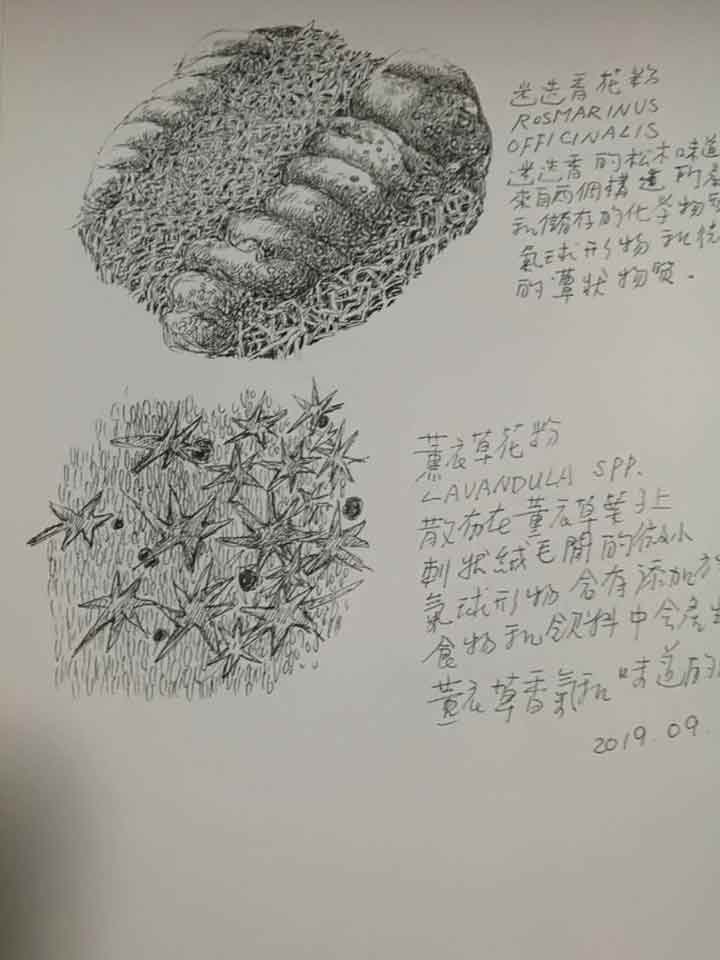 迷迭香花粉
ROSMARINUS
OFFICINALIS
迷迭香的松木味道
來自兩個構造的
和儲存的化學物
氣球形物和
的蕈狀物質。
薰衣草花粉
LAVANDULA SPP.
散布在薰衣草葉子上
刺狀絨毛間的微小
氣球形物含有添加於
食物和飲料中會產生
薰衣草香氣和味道的
2019.09.